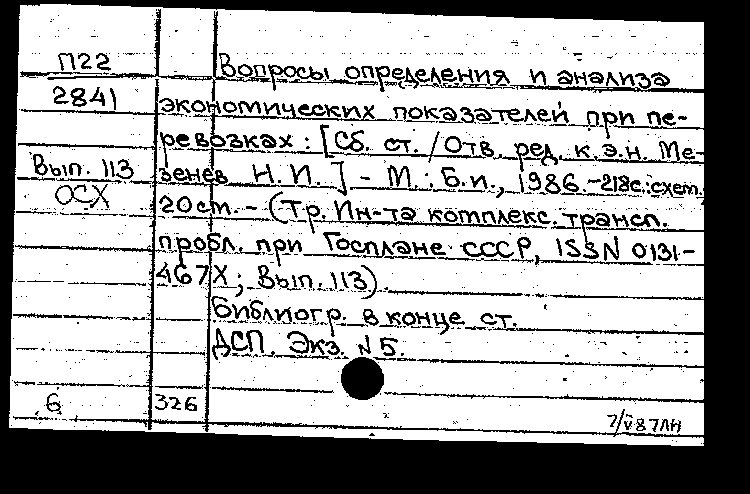 П22 Вопросы определения и анализа
2841 экономических показателей при пе-
ревозках : [Сб. ст. / Отв. ред. к.э.н. Ме-
Вып. 113 зенев Н. И.] - М. : Б.и., 1986.-218с.:схем.
ОСХ 20см. - (Тр. Ин-та комплекс. трансп.
пробл. при Госплане СССР, ISSN 0131-
467X; Вып. 113).
Библиогр. в конце ст.
ДСП. Экз. N5.
6 326
7/V 87ЛН